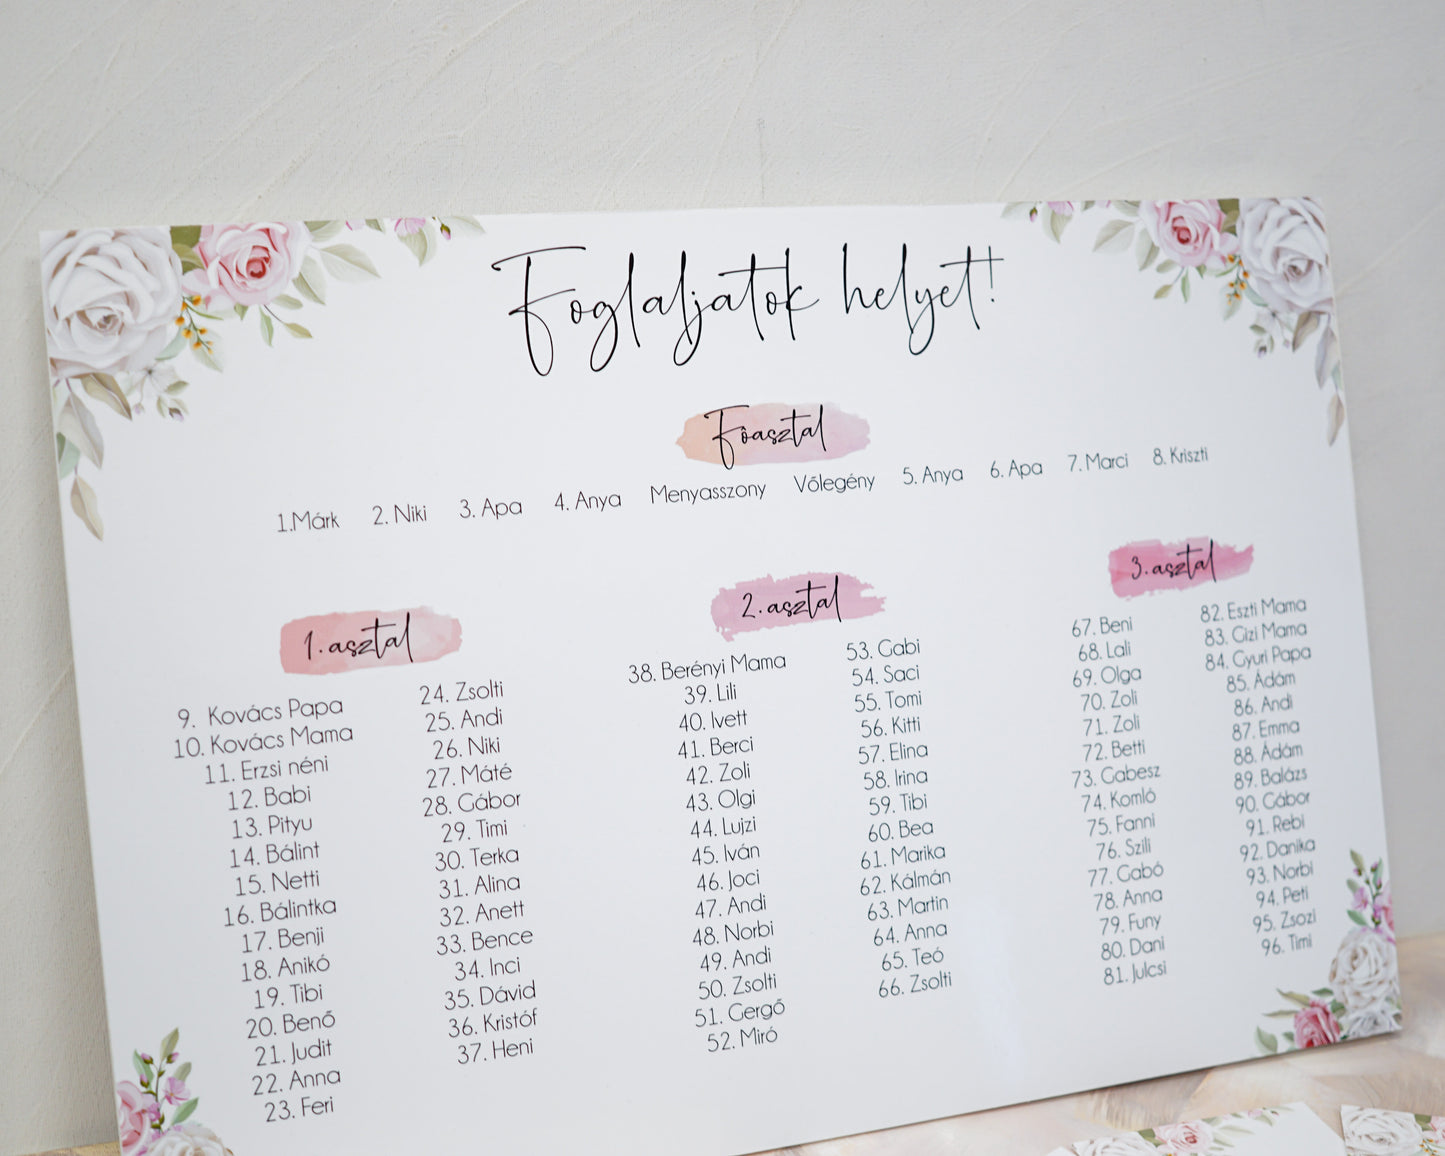 Foglaljatok helyet!
Főasztal
1.Márk 2. Niki 3. Apa 4. Anya Menyasszony Vőlegény 5. Anya 6. Apa 7. Marci 8. Kriszti
1. asztal
9. Kovács Papa
10. Kovács Mama
11. Erzsi néni
12. Babi
13. Pityu
14. Bálint
15. Netti
16. Bálintka
17. Benji
18. Anikó
19. Tibi
20. Benő
21. Judit
22. Anna
23. Feri
24. Zsolti
25. Andi
26. Niki
27. Máté
28. Gábor
29. Timi
30. Terka
31. Alina
32. Anett
33. Bence
34. Inci
35. Dávid
36. Kristóf
37. Heni
2. asztal
38. Berényi Mama
39. Lili
40. Ivett
41. Berci
42. Zoli
43. Olgi
44. Lujzi
45. Iván
46. Joci
47. Andi
48. Norbi
49. Andi
50. Zsolti
51. Gergő
52. Miró
53. Gabi
54. Saci
55. Tomi
56. Kitti
57. Elina
58. Irina
59. Tibi
60. Bea
61. Marika
62. Kálmán
63. Martin
64. Anna
65. Teó
66. Zsolti
3. asztal
67. Beni
68. Lali
69. Olga
70. Zoli
71. Zoli
72. Betti
73. Gabesz
74. Komló
75. Fanni
76. Szili
77. Gabó
78. Anna
79. Funy
80. Dani
81. Julcsi
82. Eszti Mama
83. Gizi Mama
84. Gyuri Papa
85. Ádám
86. Andi
87. Emma
88. Ádám
89. Balázs
90. Gábor
91. Rebi
92. Danika
93. Norbi
94. Peti
95. Zsozi
96. Timi